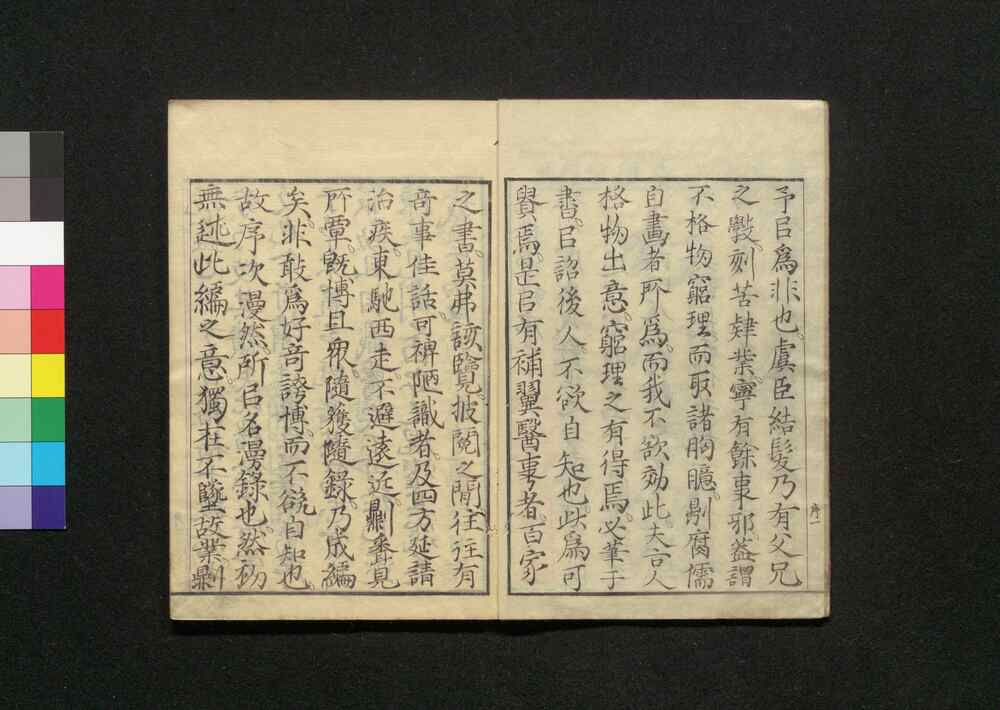 予㠯為非也虞臣結髮乃有父兄
之敎刻苦肄業寧有餘事邪蓋謂
不格物窮理而取諸胸臆勦腐儒
自畫者所為而我不欲効此大言人
格物出意窮理之有得焉必筆于
書㠯詔後人不欲自知也此為可
貴焉是㠯有補翼醫事者百家
序一
之書莫弗該覽披閱之間往往有
奇事佳話可裨陋識者及四方延請
治疾東馳西走不避遠近勦番見
所覃既博且衆隨獲隨錄乃成編
矣非敢為好奇誇博而不欲自知也
故序次漫然所㠯名漫錄也然初
無述此編之意獨在不墜故業勦